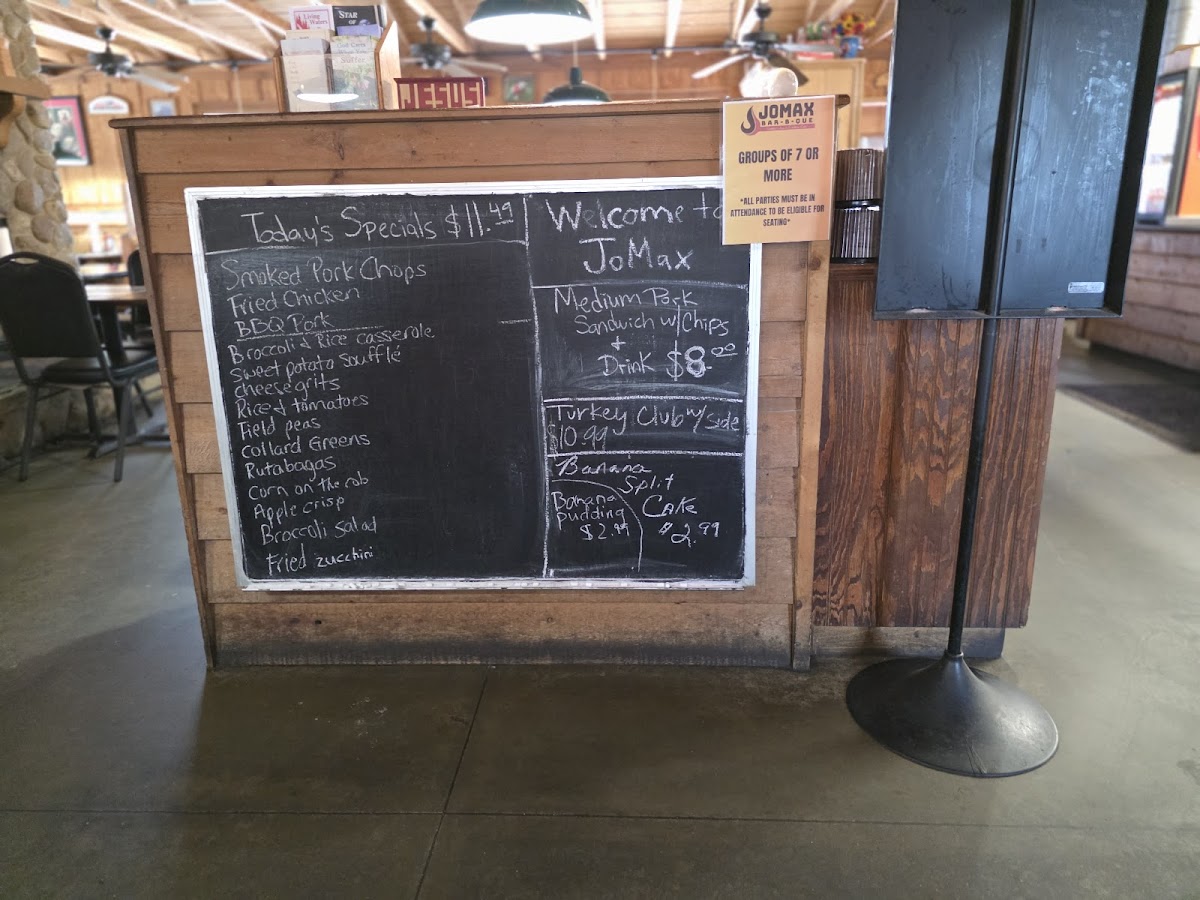 Living
Waters
STAR
OF
JESUS
JOMAX
BAR-B-QUE
GROUPS OF 7 OR
MORE
*ALL PARTIES MUST BE IN
ATTENDANCE TO BE ELIGIBLE FOR
SEATING*
Today's Specials $11.49
Smoked Pork Chops
Fried Chicken
BBQ Pork
Broccoli & Rice casserole
Sweet potato soufflé
cheese grits
Rice & tomatoes
Field peas
Collard Greens
Rutabagas
Corn on the cob
Apple crisp
Broccoli Salad
Fried zucchini
Welcome to
JoMax
Medium Pork
Sandwich w/Chips
+
Drink $8.00
Turkey Club w/ side
$10.99
Banana
Split
Cake
$2.99
Banana
Pudding
$2.99